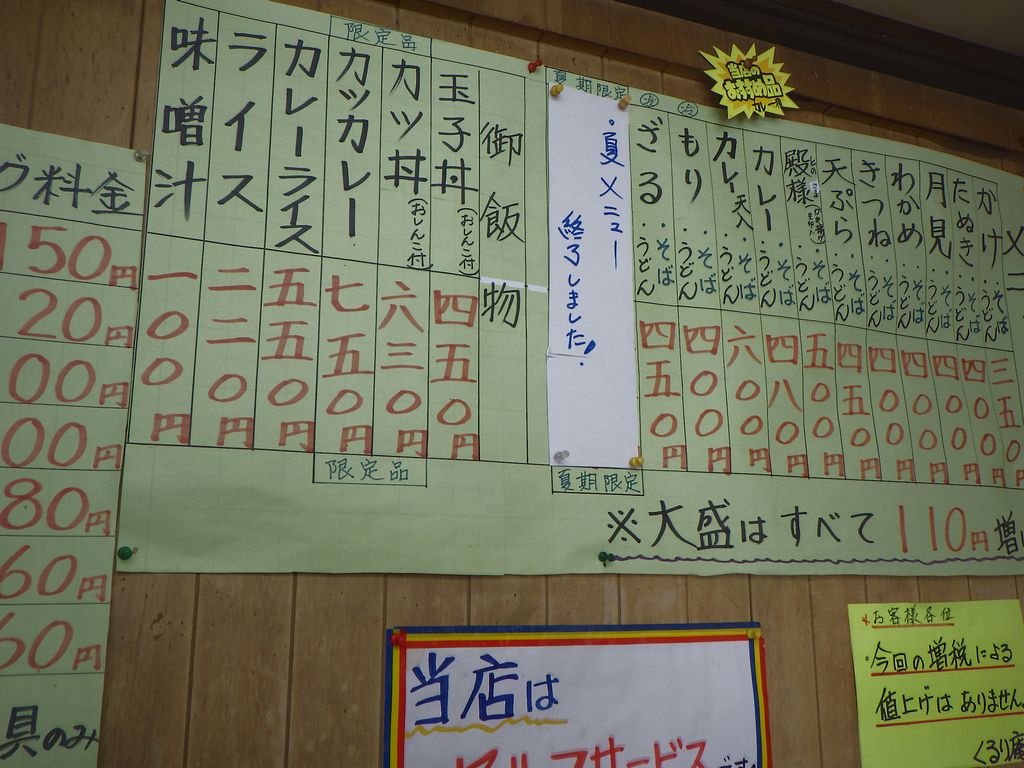 かけ・そば うどん 三五〇
たぬき・そば うどん 四〇〇円
月見・そば うどん 四〇〇円
わかめ・そば うどん 四〇〇円
きつね・そば うどん 四〇〇円
天ぷら・そば うどん 四五〇円
殿様・そば うどん 五〇〇円
カレー・そば うどん 四八〇円
カレー天入・そば うどん 六〇〇円
もり・そば うどん 四〇〇円
ざる・そば うどん 四五〇円
冷
冷
当店の
おすすめ品
カレー
夏期限定
・夏メニュー
終了しました。
夏期限定
御飯物
玉子丼(おしんこ付) 四五〇円
カツ丼(おしんこ付) 六三〇円
カツカレー 七五〇円
カレーライス 五五〇円
ライス 二二〇円
味噌汁 一〇〇円
限定品
限定品
※大盛はすべて110円増
グ料金
150円
20円
00円
00円
80円
60円
60円
具のみ
当店は
セルフサービス
です
*お客様各位
・今回の増税による
値上げはありません。
くるり庵